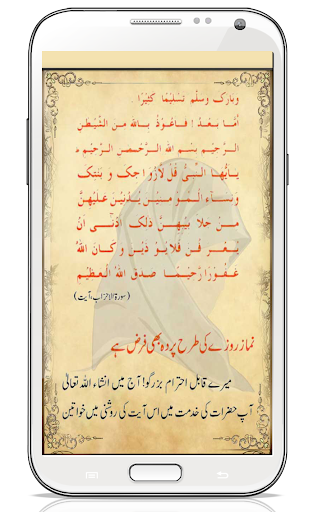 وبارک وسلّم تسلیمًا کثیرًا۔
اَمّا بَعدُ! فَاَعُوذُ بِاللّٰهِ مِنَ الشَّیْطٰنِ
الرَّجِیْمِ بِسْمِ اللّٰهِ الرَّحْمٰنِ الرَّحِیْمِ ہ
یٰاَیُّهَا النَّبِیُّ قُلْ لِّاَزْوَاجِکَ وَ بَنٰتِکَ
وَنِسَآءِ الْمُوْ مِنِیْنَ یُدْنِیْنَ عَلَیْهِنَّ
مِنْ جَلَا بِیْبِهِنَّ ذٰلِکَ اَدْنٰٓی اَنْ
یُّعْرَ فْنَ فَلَا یُوْ ذَیْنَ وَ کَانَ اللّٰهُ
غَفُوْرًارَّحِیْمًا صدق اللّٰهُ الْعَظِیْم
(سورۃ الاحزاب، آیت)
نماز روزے کی طرح پردہ بھی فرض ہے
میرے قابل احترام بزرگو! آج میں انشاء اللہ تعالیٰ
آپ حضرات کی خدمت میں اس آیت کی روشنی میں خواتین